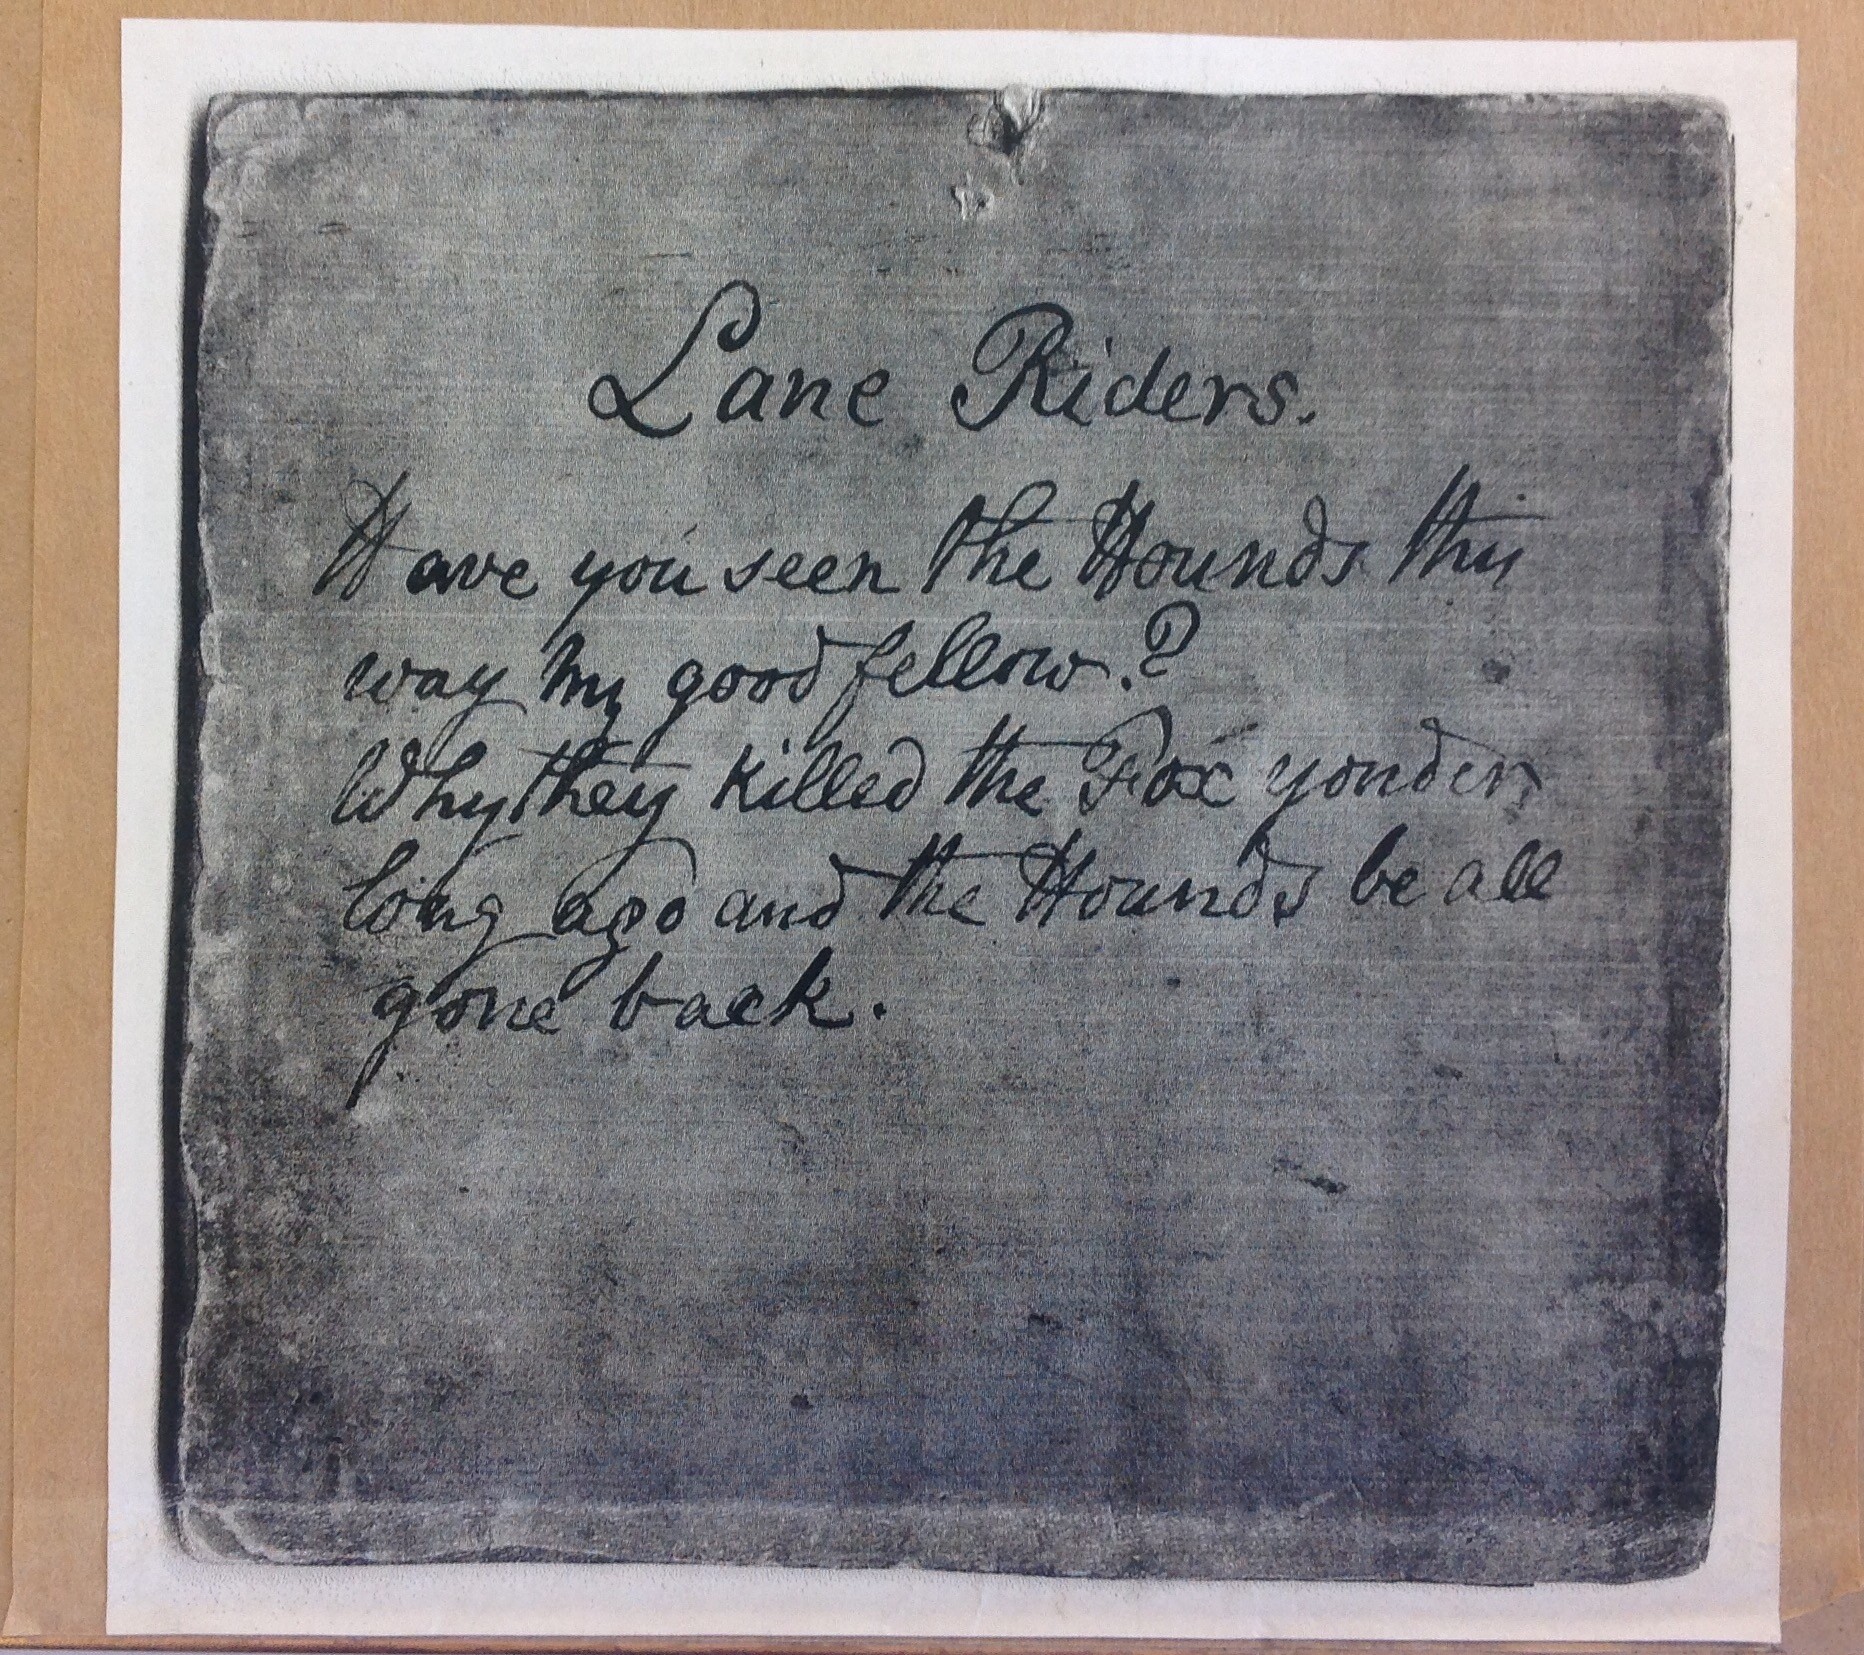 Lane Riders.
Have you seen the Hounds this
way my good fellow.?
Why they killed the Fox yonder
long ago and the Hounds be all
gone back.